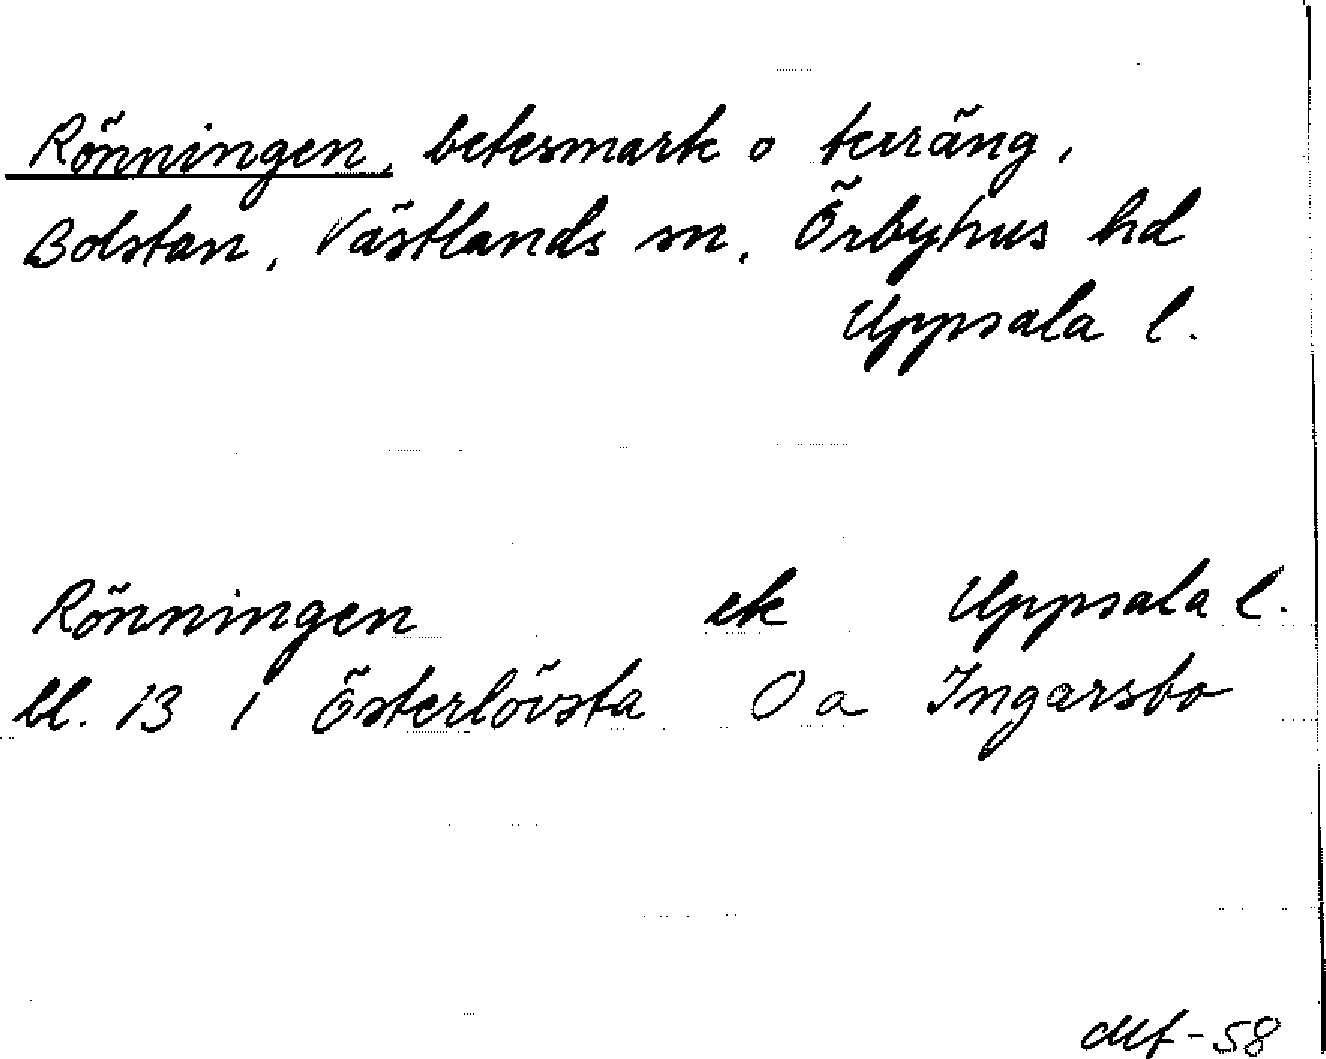 Rönningen, betesmark o terräng,
Bolstan, Västlands sn, Örbyhus hd
Uppsala l.
Rönningen ek Uppsala l.
bl. 13 i Österlövsta O a Ingarsbo
-58